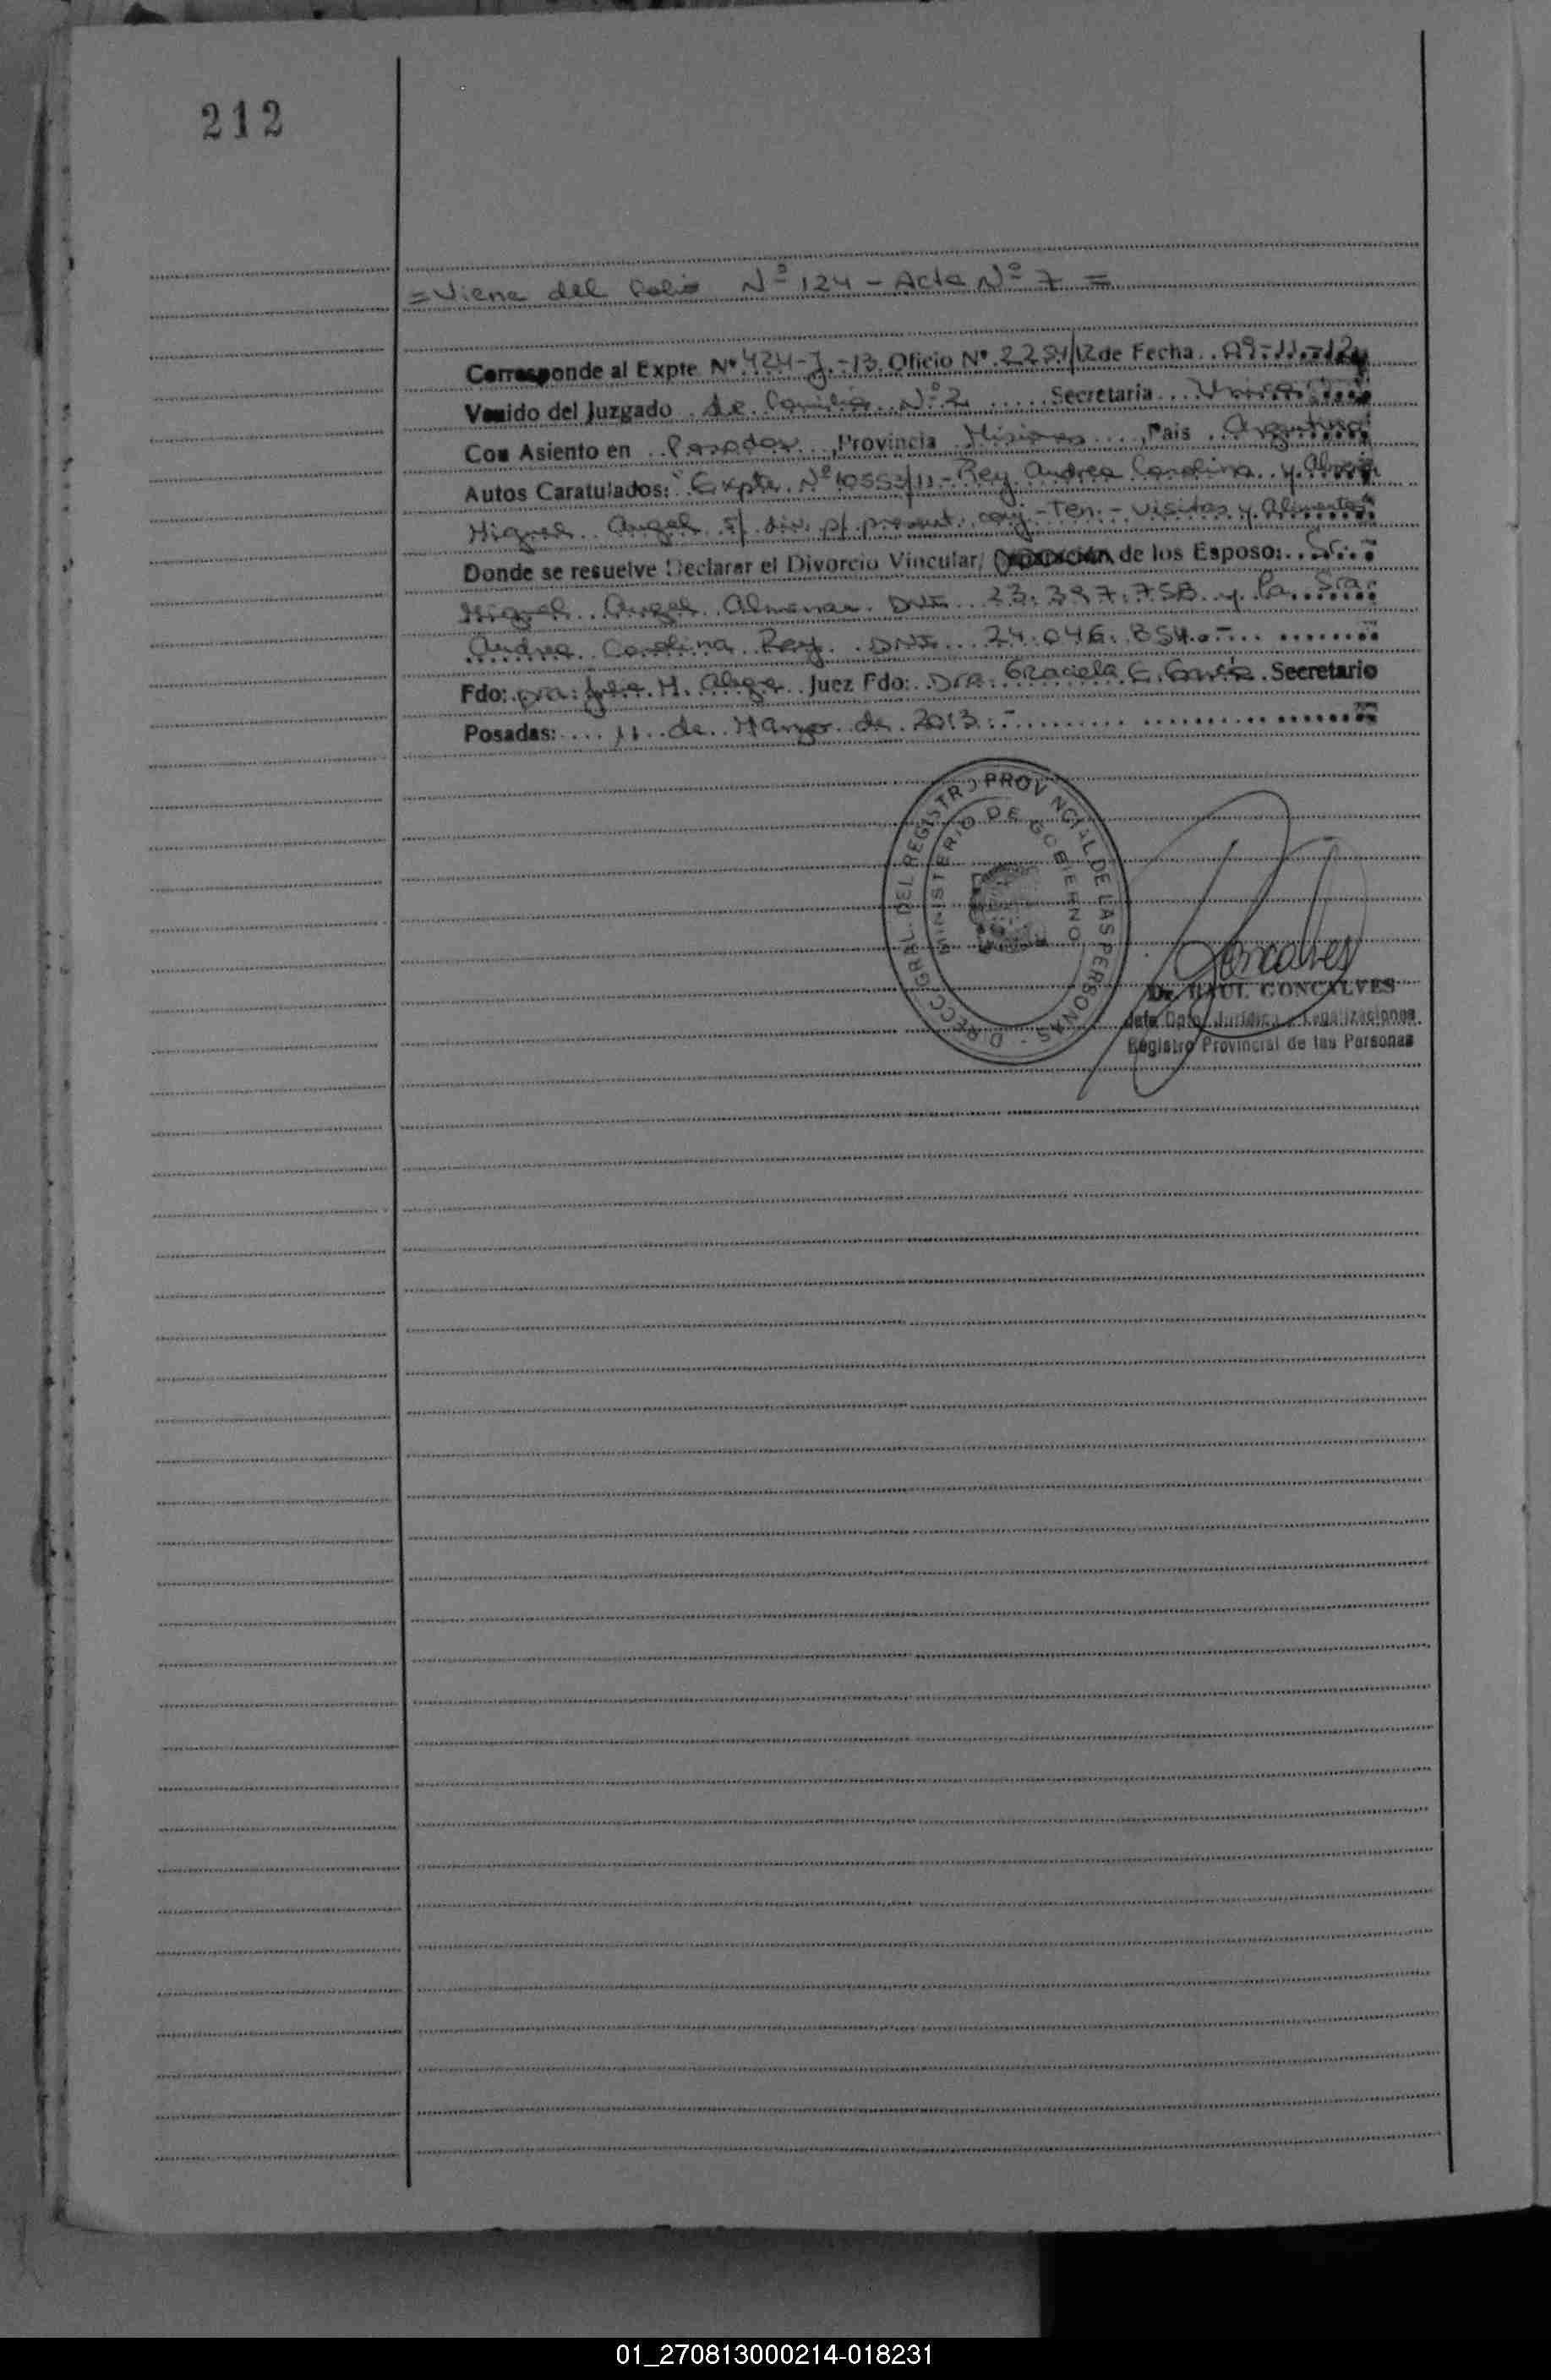 212
= Viene del Folio Nº 124 - Acta Nº 7 =
Corresponde al Expte Nº 424-J-13 Oficio Nº 2251/12 de Fecha 09-11-12
Venido del Juzgado de Familia Nº 2 Secretaria Unica
Con Asiento en Posadas, Provincia Misiones, Pais Argentina
Autos Caratulados: Expte. Nº 10553/11 - Rey Andrea Carolina y
Miguel Angel s/ div. p/ present. conj - Ten. - visitas y Alimentos
Donde se resuelve Declarar el Divorcio Vincular/ de los Esposo: Sr.
Miguel Angel DNI 23.397.758 y la Sra.
Andrea Carolina Rey. DNI 24.046.854.-
Fdo: Dra. M. Juez Fdo: Dra. Graciela E. Secretario
Posadas: 11 de Marzo de 2013.-
DIRECC. GRAL. DEL REGISTRO PROVINCIAL DE LAS PERSONAS
MINISTERIO DE GOBIERNO
Goncalves
Dr. RAUL GONCALVES
Jefe Dpto. Jurídico y Legalizaciones
Registro Provincial de las Personas
01_270813000214-018231